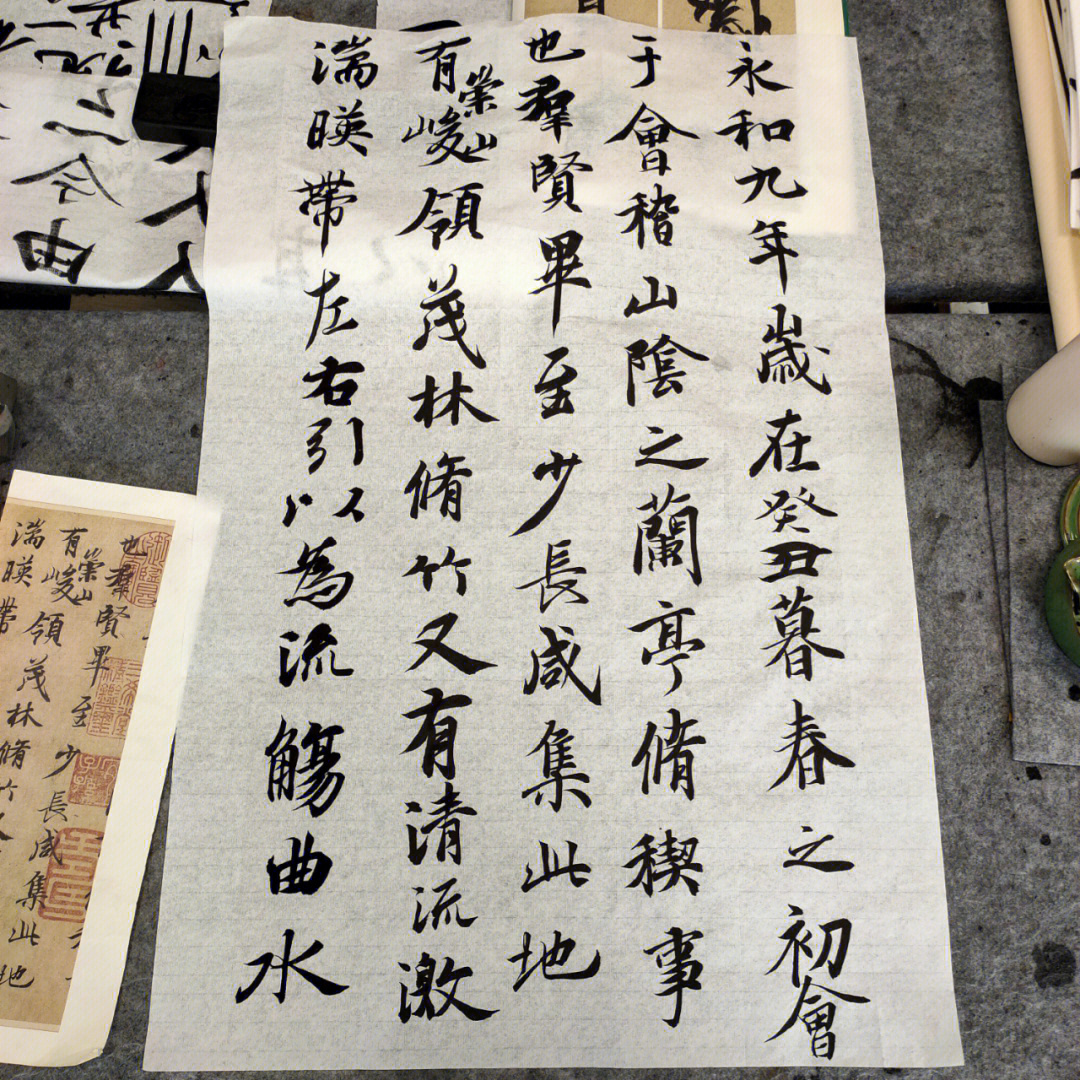 永和九年歲在癸丑暮春之初會
于會稽山陰之蘭亭脩稧事
也羣賢畢至少長咸集此地
有崇山峻領茂林脩竹又有清流激
湍暎帶左右引以為流觴曲水
也羣賢畢至少長咸集此地
有崇山峻領茂林脩竹
湍暎帶